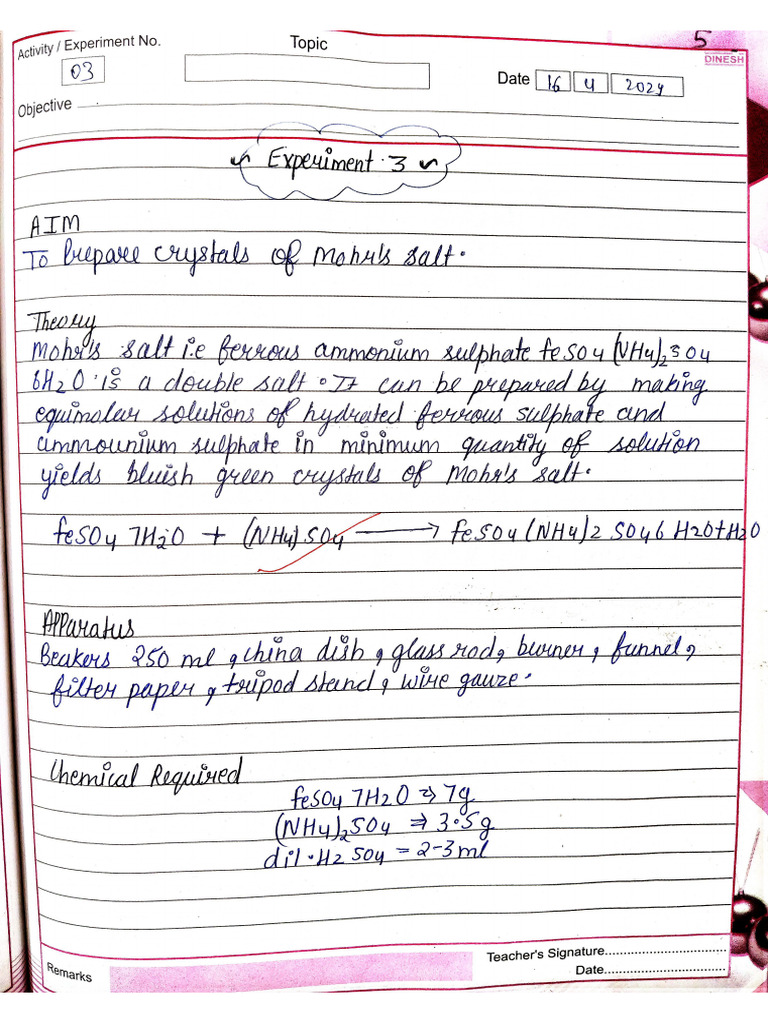 5
Activity / Experiment No.
Topic
DINESH
03
Date 16 4 2024
Objective
Experiment. 3
AIM
To Prepare crystals of Mohr's salt.
Theory
Mohr's salt i.e ferrous ammonium sulphate feSO4 (NH4)2SO4
6H2O. is a double salt. It can be prepared by making
equimolar solutions of hydrated ferrous sulphate and
ammounium sulphate in minimum quantity of solution
yields bluish green crystals of Mohr's salt.
feSO4 7H2O + (NH4) SO4 → feSO4 (NH4)2 SO4 6 H2O+H2O
Apparatus
Beakers 250 ml, china dish, glass rod, burner, funnel,
filter paper, tripod stand, wire gauze.
Chemical Required
feSO4 7H2O ⇒ 7g
(NH4)2SO4 ⇒ 3.5g
dil. H2SO4 = 2-3ml
Teacher's Signature................................
Remarks
Date................................